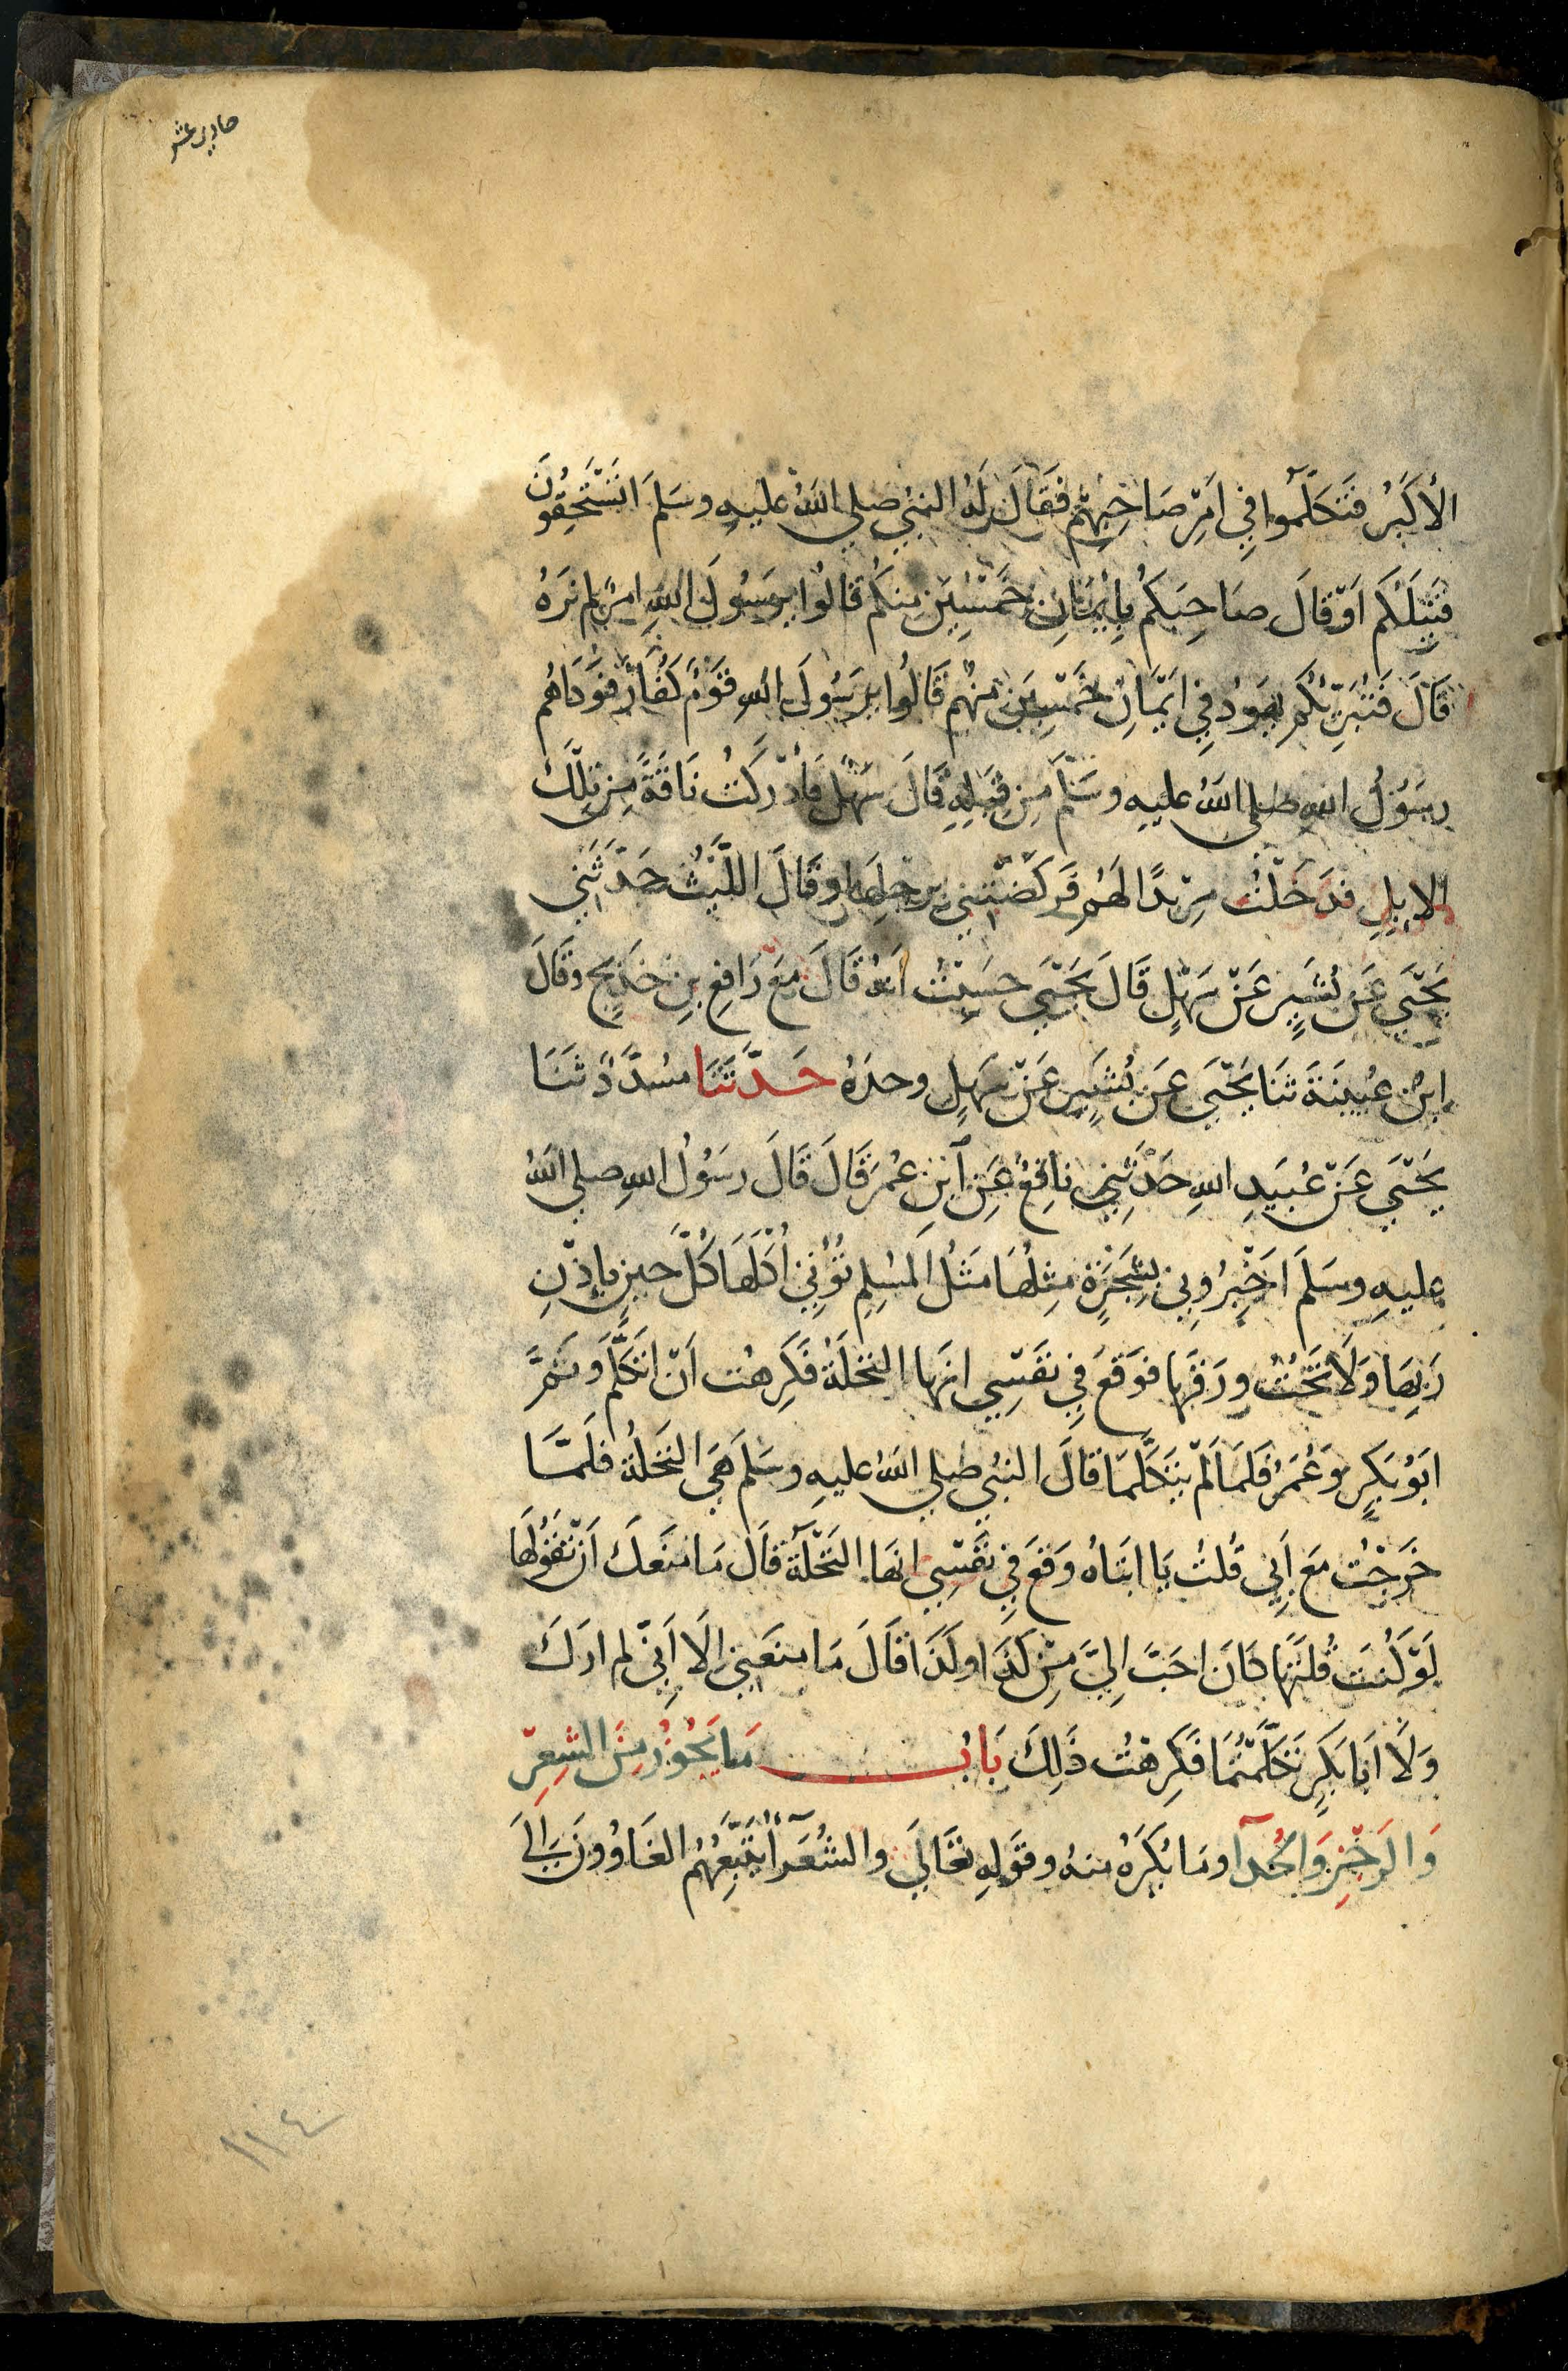 حادي عشر
الأَكْبَرُ فَتَكَلَّمُوا فِي اَمْرِ صَاحِبِهِمْ فَقَالَ لَهُ النبيُّ صلى اللهُ عليهِ وسَلمَ اتَسْتَحِقُونَ
قَتِيلَكُم اَوْ قالَ صَاحِبَكُمْ بِايْمَانِ خَمْسِينَ مِنكُم قالُوا يرَسُولَ اللهِ امرٌ لم نرَهُ
قَالَ فَتُبْرِيْكُمْ يهودُ فِي اَيْمَانِ خَمْسِينَ مِنهُم قَالُوا يرَسُولَ اللهِ قَوْمٌ كُفَّارٌ فَوَدَاهُم
رسَوُلُ اللهِ صلى اللهُ عليهِ وسَلَّمَ مِنِ قِبَلِهِ قَالَ سَهْلٌ فَاَدْرَكْتُ نَاقَةً مِن تِلْكَ
الابِلِ فدَخَلَتْ مِرْبَدًا لَهُم فَرَكَضَتْنِي بِرِجْلِهَا وقَالَ اللَّيْثُ حَدَّثَنِي
يَحْيَى عَنْ بُشَيرٍ عَنْ سَهْلٍ قَالَ يَحْيَى حسَِبْتُ اَنهُ قَالَ مَعَ رَافِعِ بنِ خَدِيجٍ وقَالَ
ابنُ عُيَينَةَ ثنَا يَحْيَى عَن بُشَيرٍ عَنْ سَهلٍ وحدَهُ حَدَّثَنَا مسُدَّدٌ ثَنَا
يَحْيَى عَنْ عُبَيدِ اللهِ حَدثَنِي نافِعٌ عَنِ ابنِ عُمَرَ قَالَ قَالَ رسَوُلُ اللهِ صلى اللهُ
عليهِ وسَلمَ اَخْبِرُونِي بشَجَرَةٍ مِثلُهَا مَثَلُ المسُلِمِ تُؤْتِي اُكلَهَا كُلَّ حِينٍ بِاِذْنِ
رَبِهَا وَلَا تَحُتُّ ورَقَهَا فوَقَعَ فِي نفَسِي انَهَا النخلَةُ فَكَرِهْتُ اَنْ اَتَكَلَّمَ وثَمَّ
ابَوُ بَكرٍ وَعُمَرُ فَلمَا لَمْ يتَكَلَّمَا قالَ النبيُّ صلى اللهُ عليهِ وسَلمَ هِيَ النَخلَةُ فلَمَّا
خَرَجْتُ مَعَ اَبِي قُلتُ يَا ابَتَاهُ وَقَعَ فِي نفَسِي انهَا النَخْلَةُ قَالَ مَا مَنَعكَ اَنْ تَقُولَهَا
لَوْ كُنتَ قُلتَهَا كَانَ احَبَّ اِلَيَّ مِنْ كَذَا وكَذَا قَالَ مَا منَعَنِي اِلَّا اَنِّي لم ارَكَ
وَلَا اَبَا بَكرٍ تَكَلَّمْتُمَا فَكَرِهْتُ ذَلِكَ بَابُ مَا يَجُوزُ مِنَ الشِعِرْ
وَالرَجْزِ وَالحُدَآ ومَا يُكرَهُ منهُ وقَولِهِ تعَالَى والشُعَرَآءُ يَتَّبِعُهُمُ الغَاوُونَ اِلىَ
١١٤